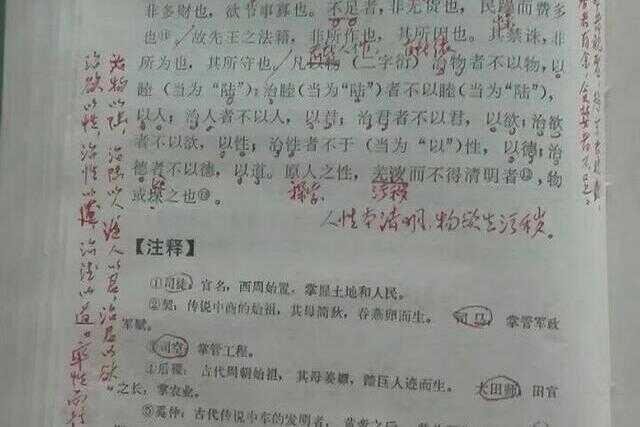 非多财也，欲节事寡也。不足者，非无货也，民躁而费多
也⑪，故先王之法籍，非所作也，其所因也。其禁诛，非
所为也，其所守也，凡以物（二字衍）治物者不以物，以
睦（当为“陆”）；治睦（当为“陆”）者不以睦（当为“陆”），
以人；治人者不以人，以君；治君者不以君，以欲；治欲
者不以欲，以性；治性者不于（当为“以”）性，以德；治
德者不以德，以道。原人之性，芜秽而不得清明者⑫，物
或堁之也⑬。
人性本清明，物欲生污秽。
【注释】
①司徒：官名，西周始置。掌握土地和人民。
②契：传说中商的始祖，其母简狄，吞燕卵而生。 司马：掌管军政
军赋。
③司空：掌管工程。
④后稷：古代周朝始祖，其母姜嫄，踏巨人迹而生。 大田师：田官
之长，掌农业。
⑤奚仲：古代传说中车的发明者，黄帝之后
治物以陆，治陆以人，治人以君，治君以欲，
治欲以性，治性以德，治德以道。率性而行